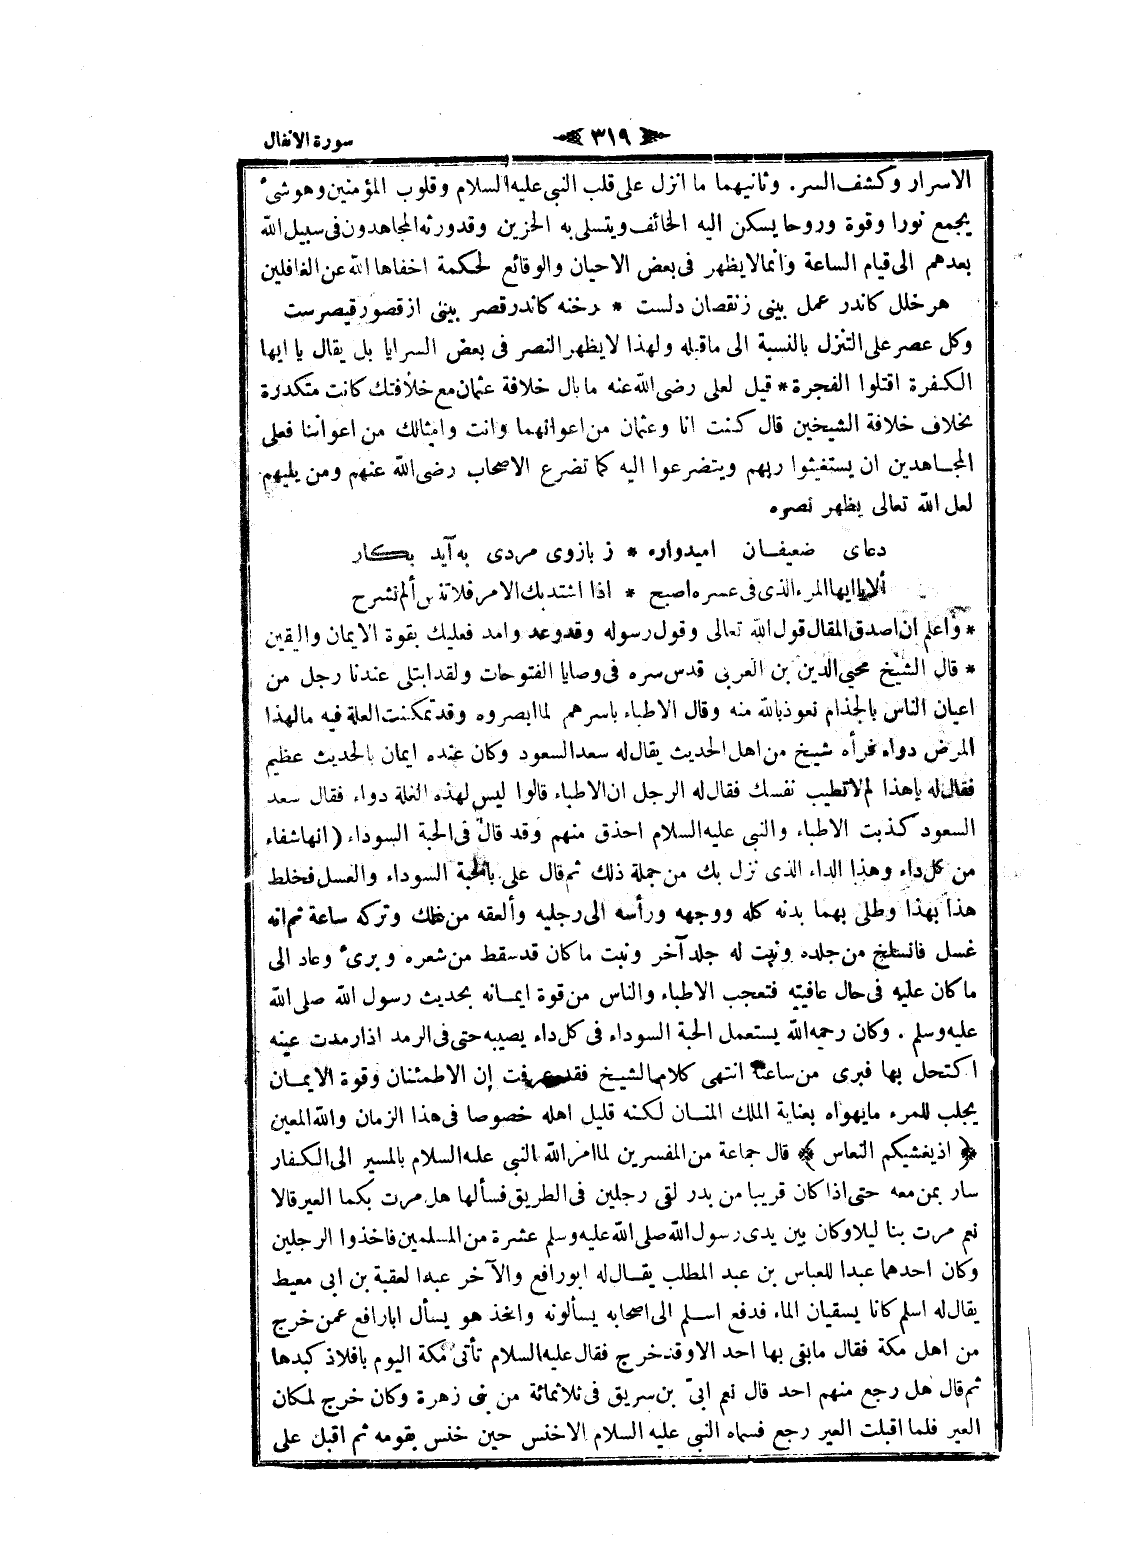 سورة الانفال
٣١٩
الاسرار وكشف السر. وثانيهما ما انزل على قلب النبى عليه السلام وقلوب المؤمنين وهو شىء
يجمع نورا وقوة وروحا يسكن اليه الخائف ويتسلى به الحزين وقد ورثه المجاهدون فى سبيل الله
بعدهم الى قيام الساعة وانما لا يظهر فى بعض الاحيان والوقائع لحكمة اخفاها الله عن الغافلين
هر خلل كاندر عمل بينى ز نقصان دلست * رخنه كاندر قصر بينى از قصور قيصرست
وكل عصر على التنزل بالنسبة الى ما قبله ولهذا لا يظهر النصر فى بعض السرايا بل يقال يا ايها
الكفرة اقتلوا الفجرة * قيل لعلى رضى الله عنه ما بال خلافة عثمان مع خلافتك كانت متكدرة
بخلاف خلافة الشيخين قال كنت انا وعثمان من اعوانهما وانت وامثالك من اعواننا فعلى
المجاهدين ان يستغيثوا ربهم ويتضرعوا اليه كما تضرع الاصحاب رضى الله عنهم ومن يليهم
لعل الله تعالى يظهر نصره
دعاى ضعيفان اميدواره * ز بازوى مردى به آيد بكار
ألا يا ايها المرء الذى فى عسره اصبح * اذا اشتد بك الامر فلا تنس ألم نشرح
* واعلم ان اصدق المقال قول الله تعالى وقول رسوله وقد وعد وامد فعليك بقوة الايمان واليقين
* قال الشيخ محيى الدين بن العربى قدس سره فى وصايا الفتوحات ولقد ابتلى عندنا رجل من
اعيان الناس بالجذام نعوذ بالله منه وقال الاطباء باسرهم لما ابصروه وقد تمكنت العلة فيه ما لهذا
المرض دواء فرأه شيخ من اهل الحديث يقال له سعد السعود وكان عنده ايمان بالحديث عظيم
فقال له يا هذا لم لا تطبب نفسك فقال له الرجل ان الاطباء قالوا ليس لهذه العلة دواء فقال سعد
السعود كذبت الاطباء والنبى عليه السلام احذق منهم وقد قال فى الحبة السوداء ( انها شفاء
من كل داء وهذا الداء الذى نزل بك من جملة ذلك ثم قال على بالحبة السوداء والعسل فخلط
هذا بهذا وطلى بهما بدنه كله ووجهه ورأسه الى رجليه وألعقه من ذلك وتركه ساعة ثم انه
غسل فانسلخ من جلده ونبت له جلد آخر ونبت ما كان قد سقط من شعره وبرئ وعاد الى
ما كان عليه فى حال عافيته فتعجب الاطباء والناس من قوة ايمانه بحديث رسول الله صلى الله
عليه وسلم . وكان رحمه الله يستعمل الحبة السوداء فى كل داء يصيبه حتى فى الرمد اذا رمدت عينه
اكتحل بها فبرى من ساعته انتهى كلام الشيخ فقد عرفت إن الاطمئنان وقوة الايمان
يجلب للمرء ما يهواه بعناية الملك المنان لكنه قليل اهله خصوصا فى هذا الزمان والله المعين
﴿ اذ يغشيكم النعاس ﴾ قال جماعة من المفسرين لما امر الله النبى عليه السلام بالمسير الى الكفار
سار بمن معه حتى اذا كان قريبا من بدر لقى رجلين فى الطريق فسألها هل مرت بكما العير قالا
نعم مرت بنا ليلا وكان بين يدى رسول الله صلى الله عليه وسلم عشرة من المسلمين فاخذوا الرجلين
وكان احدهما عبدا للعباس بن عبد المطلب يقال له ابو رافع والآخر عبدا لعقبة بن ابى معيط
يقال له اسلم كانا يسقيان الماء فدفع اسلم الى اصحابه يسألونه واخذ هو يسأل ابا رافع عمن خرج
من اهل مكة فقال ما بقى بها احد الا وقد خرج فقال عليه السلام تأتى مكة اليوم بافلاذ كبدها
ثم قال هل رجع منهم احد قال نعم ابىّ بن سريق فى ثلاثمائة من بنى زهرة وكان خرج لمكان
العير فلما اقبلت العير رجع فسماه النبى عليه السلام الاخنس حين خنس بقومه ثم اقبل على